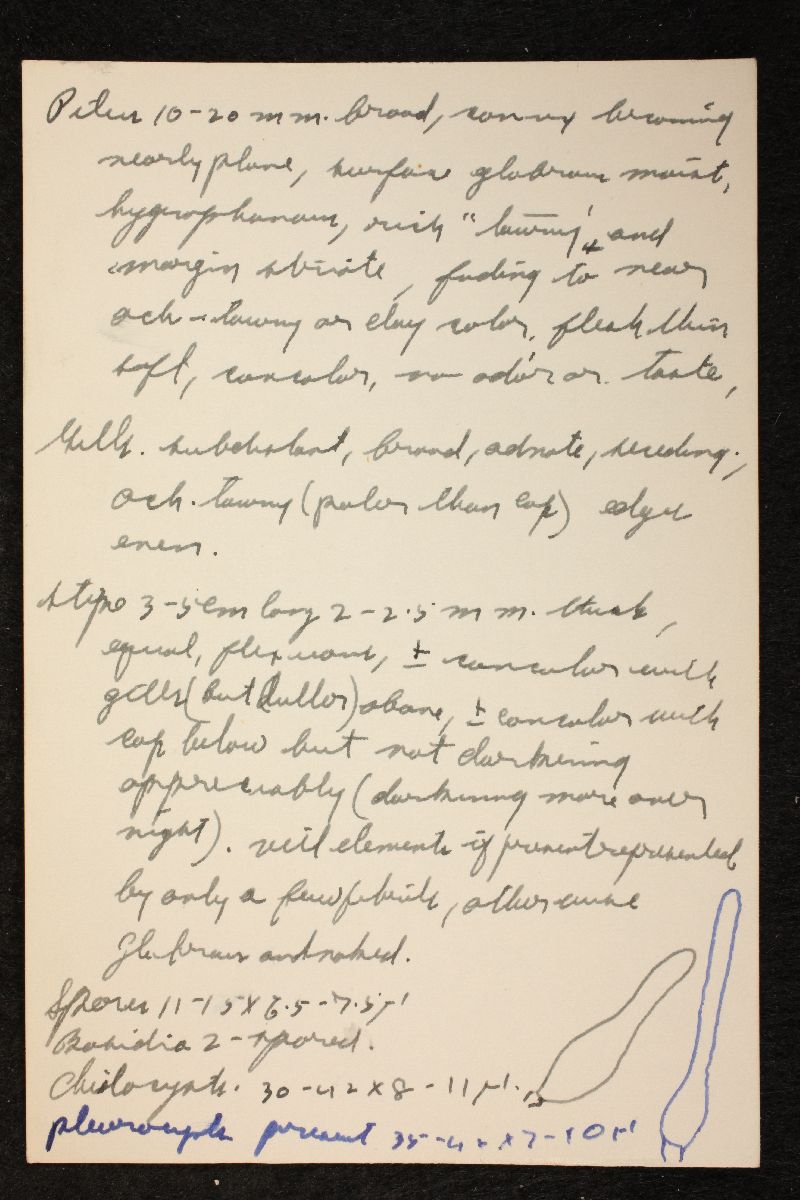 Pileus 10-20 mm. broad, convex becoming
nearly plane, surface glabrous moist,
hygrophanous, rich "tawny" and
margin striate, fading to near
och-tawny or clay color, flesh thin
soft, concolor, no odor or taste,
Gills. subdistant, broad, adnate, seceding,
och. tawny (paler than cap) edges
even.
Stipe 3-5cm long 2-2.5 mm. thick,
equal, flexuous, ± concolor with
gills (but duller) above, ± concolor with
cap below but not darkening
appreciably (darkening more over
night). veil elements if present represented
by only a few fibrils, otherwise
glabrous and naked.
Spores 11-15 x 6.5-7.5 µ
Basidia 2-spored.
Cheilocysts. 30-42 x 8-11 µ.
pleurocysts present 35-42 x 7-10 µ